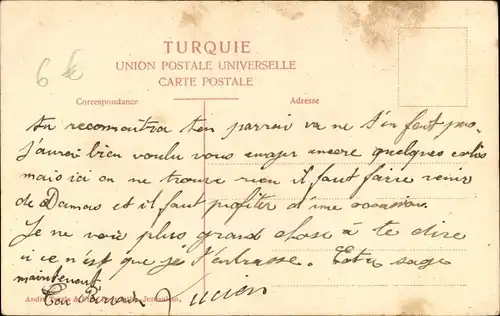 6 €
TURQUIE
UNION POSTALE UNIVERSELLE
CARTE POSTALE
Correspondance
Adresse
tu reconnaitra ton parrain va ne t'en fent pas.
J'aurai bien voulu vous envoyer encore quelques colis
mais ici on ne trouve rien il faut faire venir
de Damas et il faut profiter d'une occasion.
Je ne vois plus grand chose à te dire
si ce n'est que je t'embrasse. Soit sage
maintenant
Ton Parrain Lucien
André Jerusalem